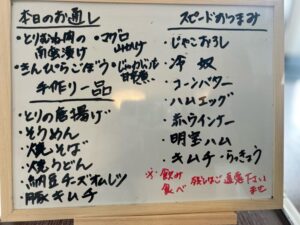 本日のお通し
・とりむね肉の
南蛮漬け
・マグロ
山かけ
・きんぴらごぼう
・じゃがバジル
甘煮
手作り一品
・とりの唐揚げ
・そうめん
・焼そば
・焼うどん
・納豆チーズオムレツ
・豚キムチ
スピードおつまみ
・じゃこおろし
・冷奴
・コーンバター
・ハムエッグ
・赤ウインナー
・明宝ハム
・キムチ・らっきょう
※飲み
食べ
残しはご遠慮下さい
ませ